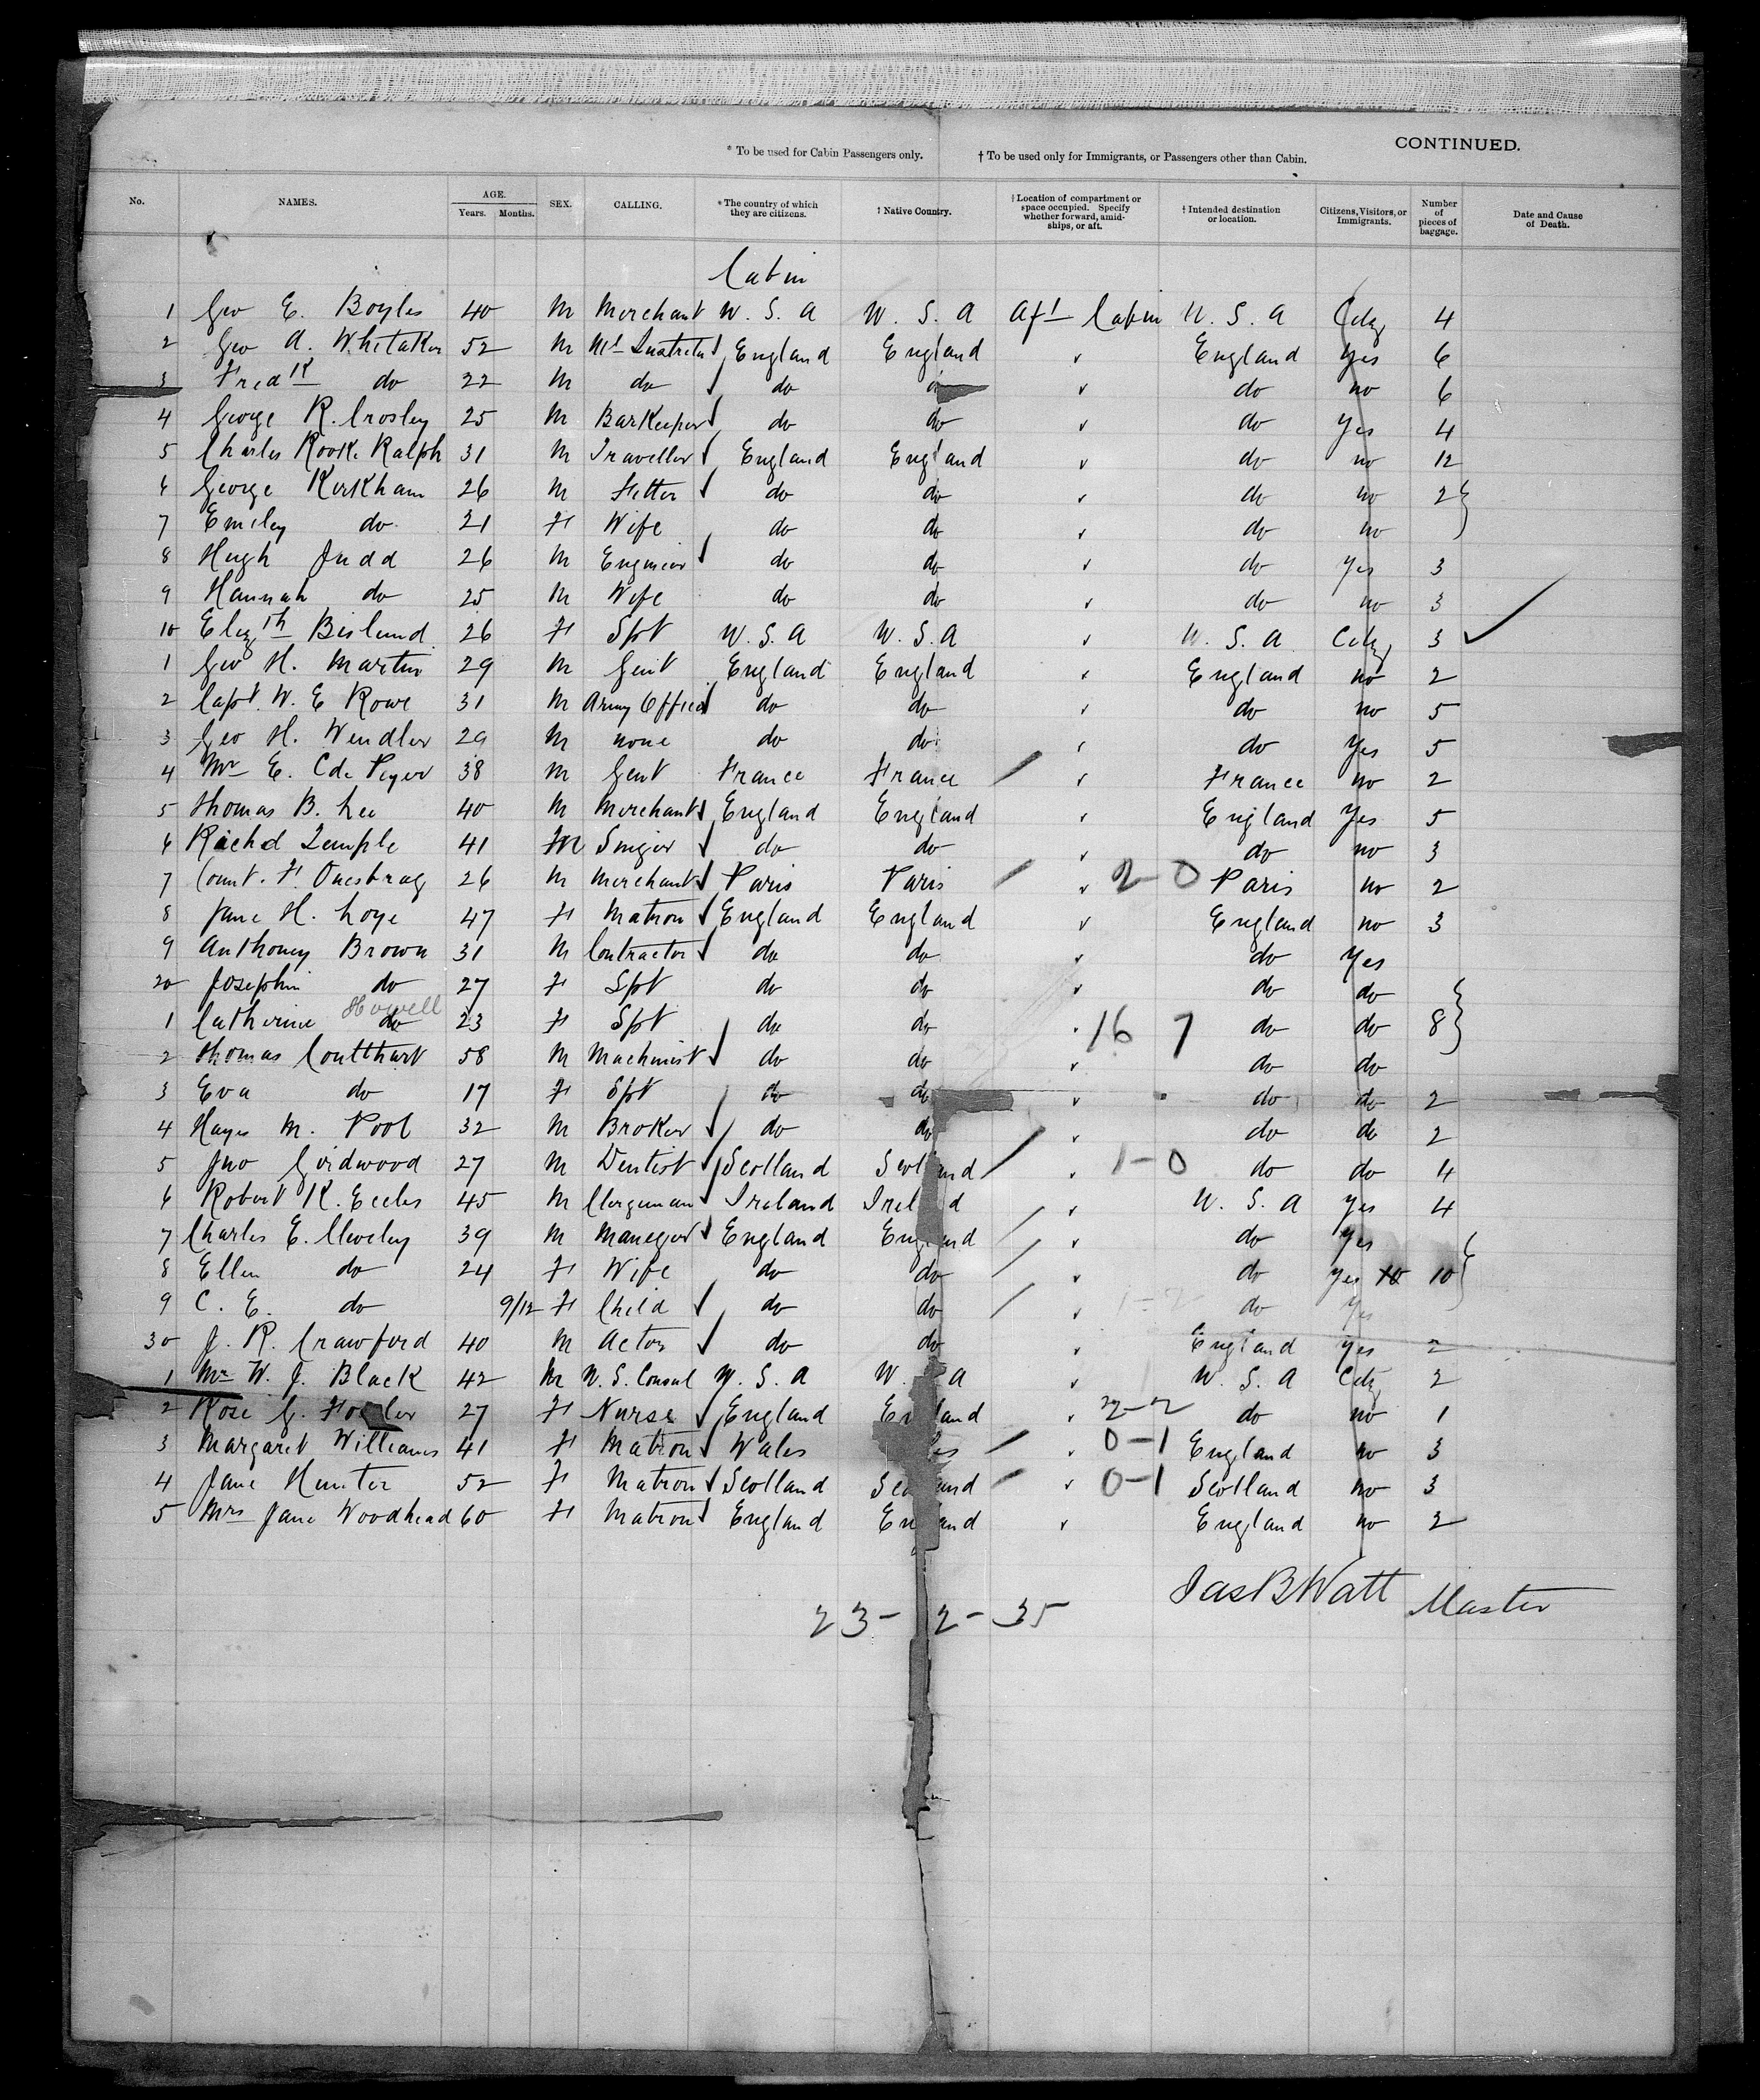 CONTINUED.
* To be used for Cabin Passengers only. † To be used only for Immigrants, or Passengers other than Cabin.
No. NAMES. AGE. Years. Months. SEX. CALLING. * The country of which they are citizens. † Native Country. † Location of compartment or space occupied. Specify whether forward, amidships, or aft. † Intended destination or location. Citizens, Visitors, or Immigrants. Number of pieces of baggage. Date and Cause of Death.
Cabin
1 Geo E. Boyles 40 M Merchant U. S. A U. S. A Aft Cabin U. S. A 4
2 Geo A. Whitaker 52 M England England England Yes 6
3 Fredk do 22 M do do do no 6
4 George R. Crosley 25 M Barkeeper do do do Yes 4
5 Charles Rooke Ralph 31 M Traveller England England do no 12
6 George Kirkham 26 M Fitter do do do no 2
7 Emiley do 21 F Wife do do do no
8 Hugh Judd 26 M Engineer do do do Yes 3
9 Hannah do 25 M Wife do do do no 3
10 Elizth Bisland 26 F Spt U. S. A U. S. A U. S. A 3
1 Geo H. Martin 29 M Gent England England England no 2
2 Capt. W. E Rowe 31 M Army Officer do do do no 5
3 Geo H. Wendler 29 M none do do do Yes 5
4 Mr E. C de Peyer 38 M Gent France France France no 2
5 Thomas B. Lee 40 M Merchant England England England Yes 5
6 Richd Temple 41 M Singer do do do no 3
7 Count. F. 26 M Merchant Paris Paris 2-0 Paris no 2
8 Jane H. Loye 47 F Matron England England England no 3
9 Anthoney Brown 31 M Contractor do do do Yes
20 Josephin do 27 F Spt do do do do
1 Catherine do Howell 23 F Spt do do 16 7 do do 8
2 Thomas Coultthart 58 M Machinist do do do do
3 Eva do 17 F Spt do do do do 2
4 Hayes M. Pool 32 M Broker do do do do 2
5 Jno Girdwood 27 M Dentist Scotland Scotland 1-0 do do 4
6 Robert K. Eccles 45 M Clergeman Ireland Ireland U. S. A Yes 4
7 Charles E. Cleveley 39 M Maneger England England do Yes
8 Ellen do 24 F Wife do do do Yes 10 10
9 C. E. do 9/12 F Child do do 1-2 do Yes
30 J. R. Crawford 40 M Actor do do England Yes 2
1 Mr W. J. Black 42 M U. S. Consul U. S. A U. A U. S. A 2
2 Rose G. 27 F Nurse England England 2-2 do no 1
3 Margaret Williams 41 F Matron Wales 0-1 England no 3
4 Jane Hunter 52 F Matron Scotland Scotland 0-1 Scotland no 3
5 Mrs Jane Woodhead 60 F Matron England England England no 2
Jas B Watt Master
23- 2- 35